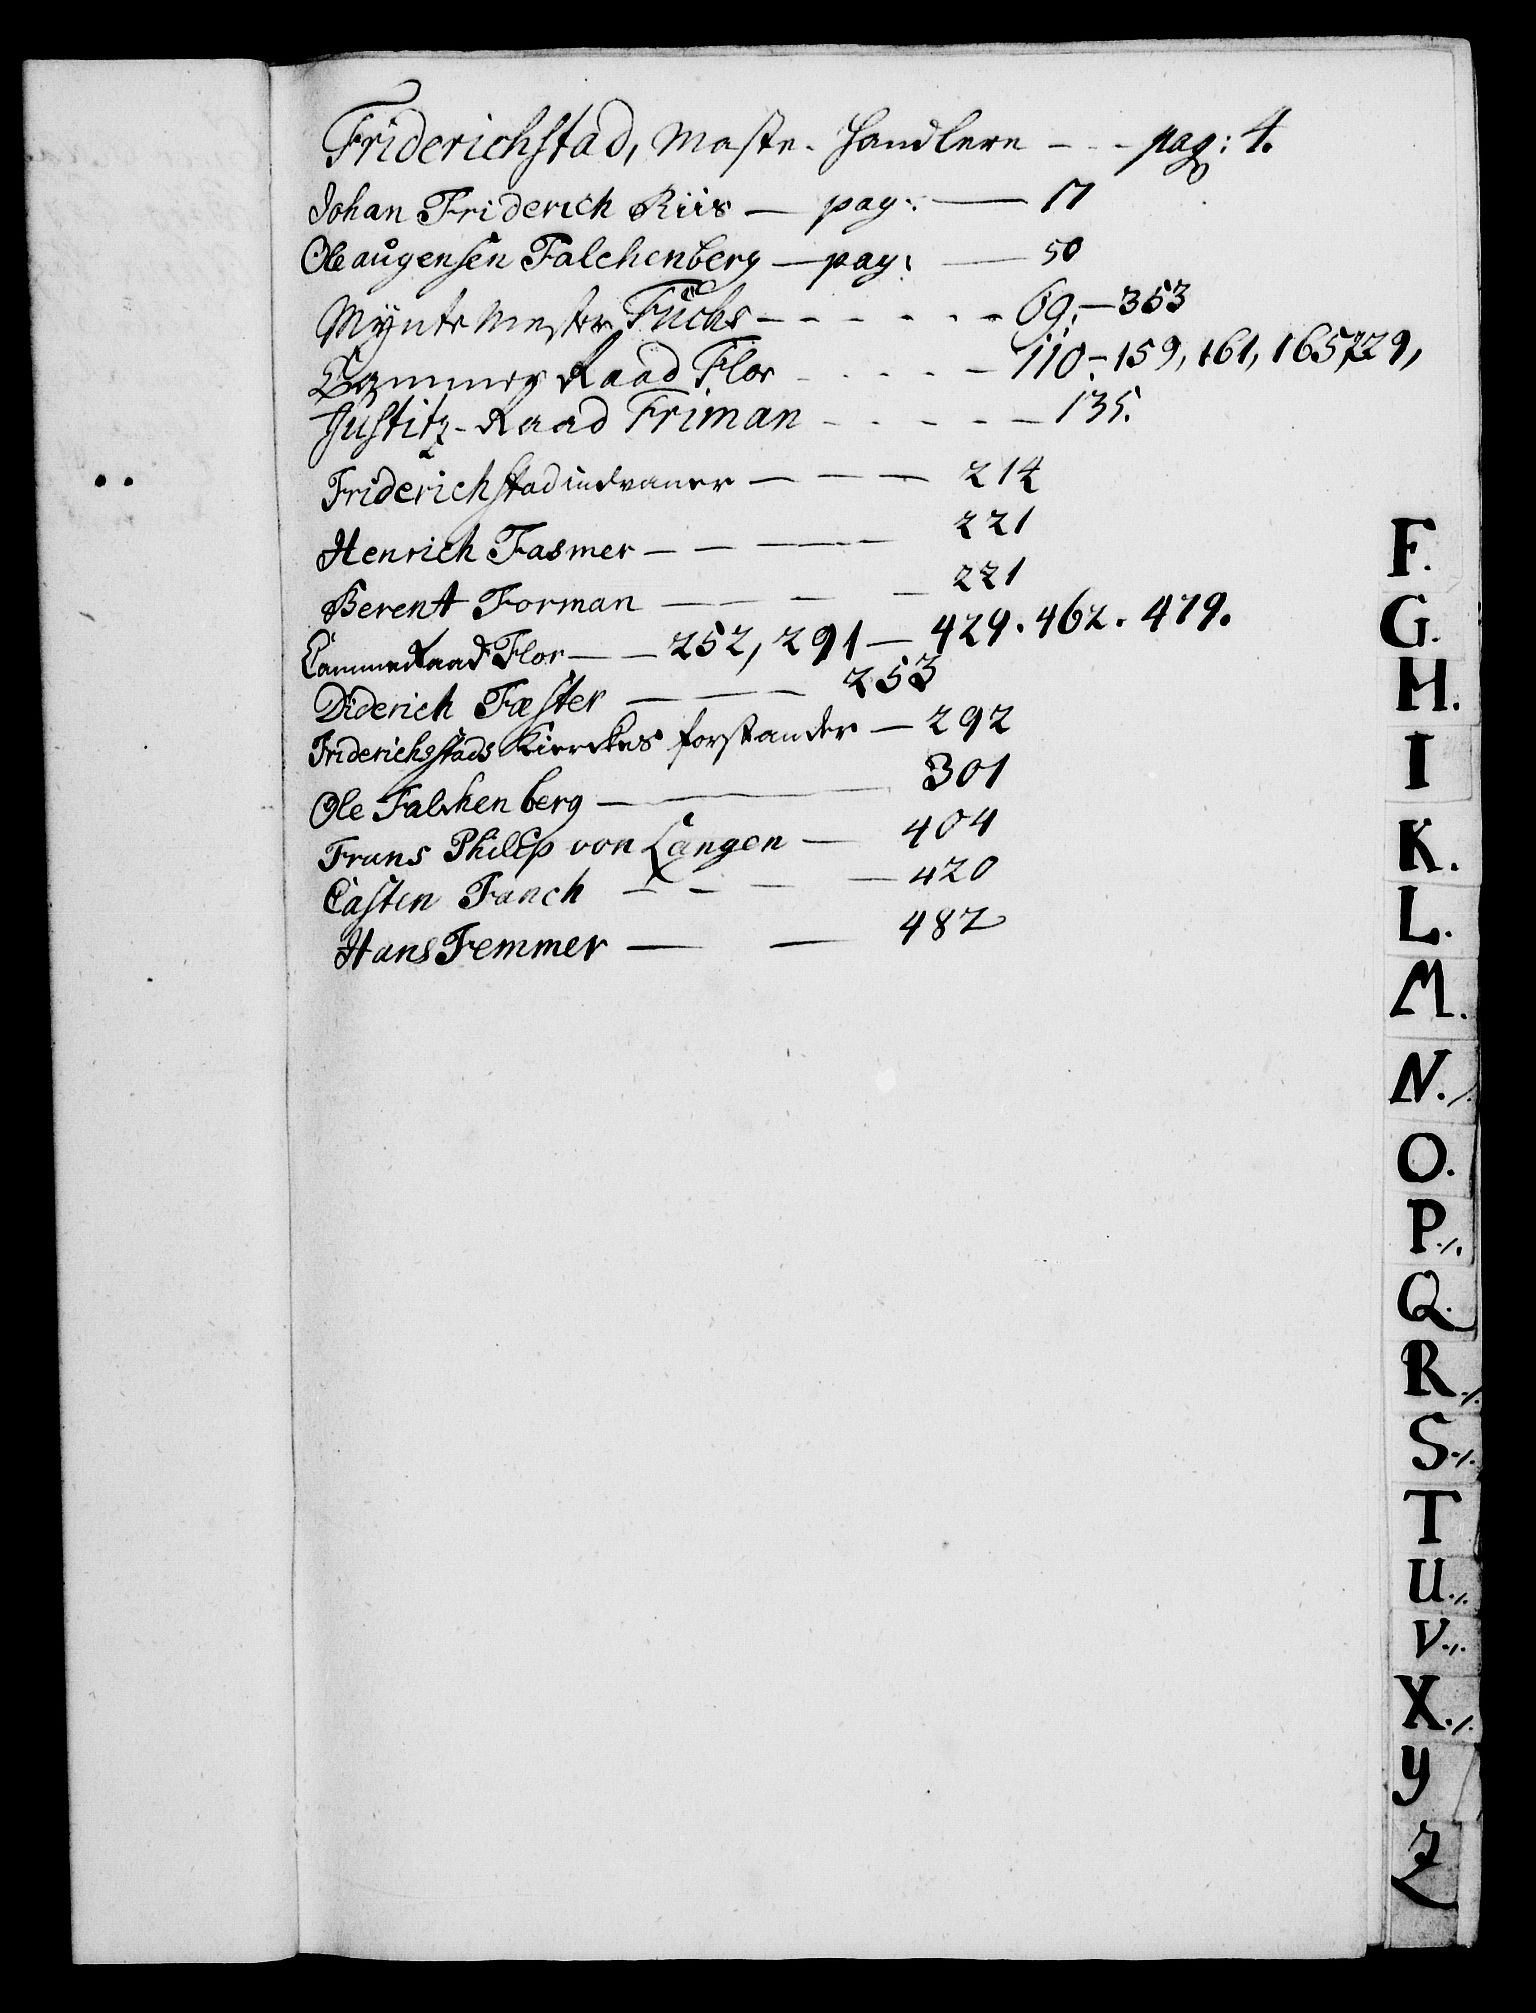 Friderichstad, Maste-Handlere - - - pag: 4.
Johan Friderich Riis — pag: — 17
Ole augensen Falchenberg — pag: — 50
Mynte Mester Fuchs - - - - - - 69. — 353
Cammer Raad Flor - - - - - 110 - 159, 161, 165, 229,
Justitz-Raad Friman - - - - - 135.
Friderichstad indvaner — — — 214
Henrich Fasmer — — — — 221
Berent Forman — — — — 221
Cammerraad Flor — — 252, 291 — 429. 462. 479.
Diderich Fæster — — — 253
Friderichsstads Kierckes forstander — 292
Ole Falchenberg — — — 301
Frans Philip von Langen — 404
Casten Fanch — — — — 420
Hans Femmer — — 482
F.
G.
H.
I
K.
L.
M.
N./.
O.
P./.
Q.
R./.
S./.
T
U./.
V./.
X./.
y
Z